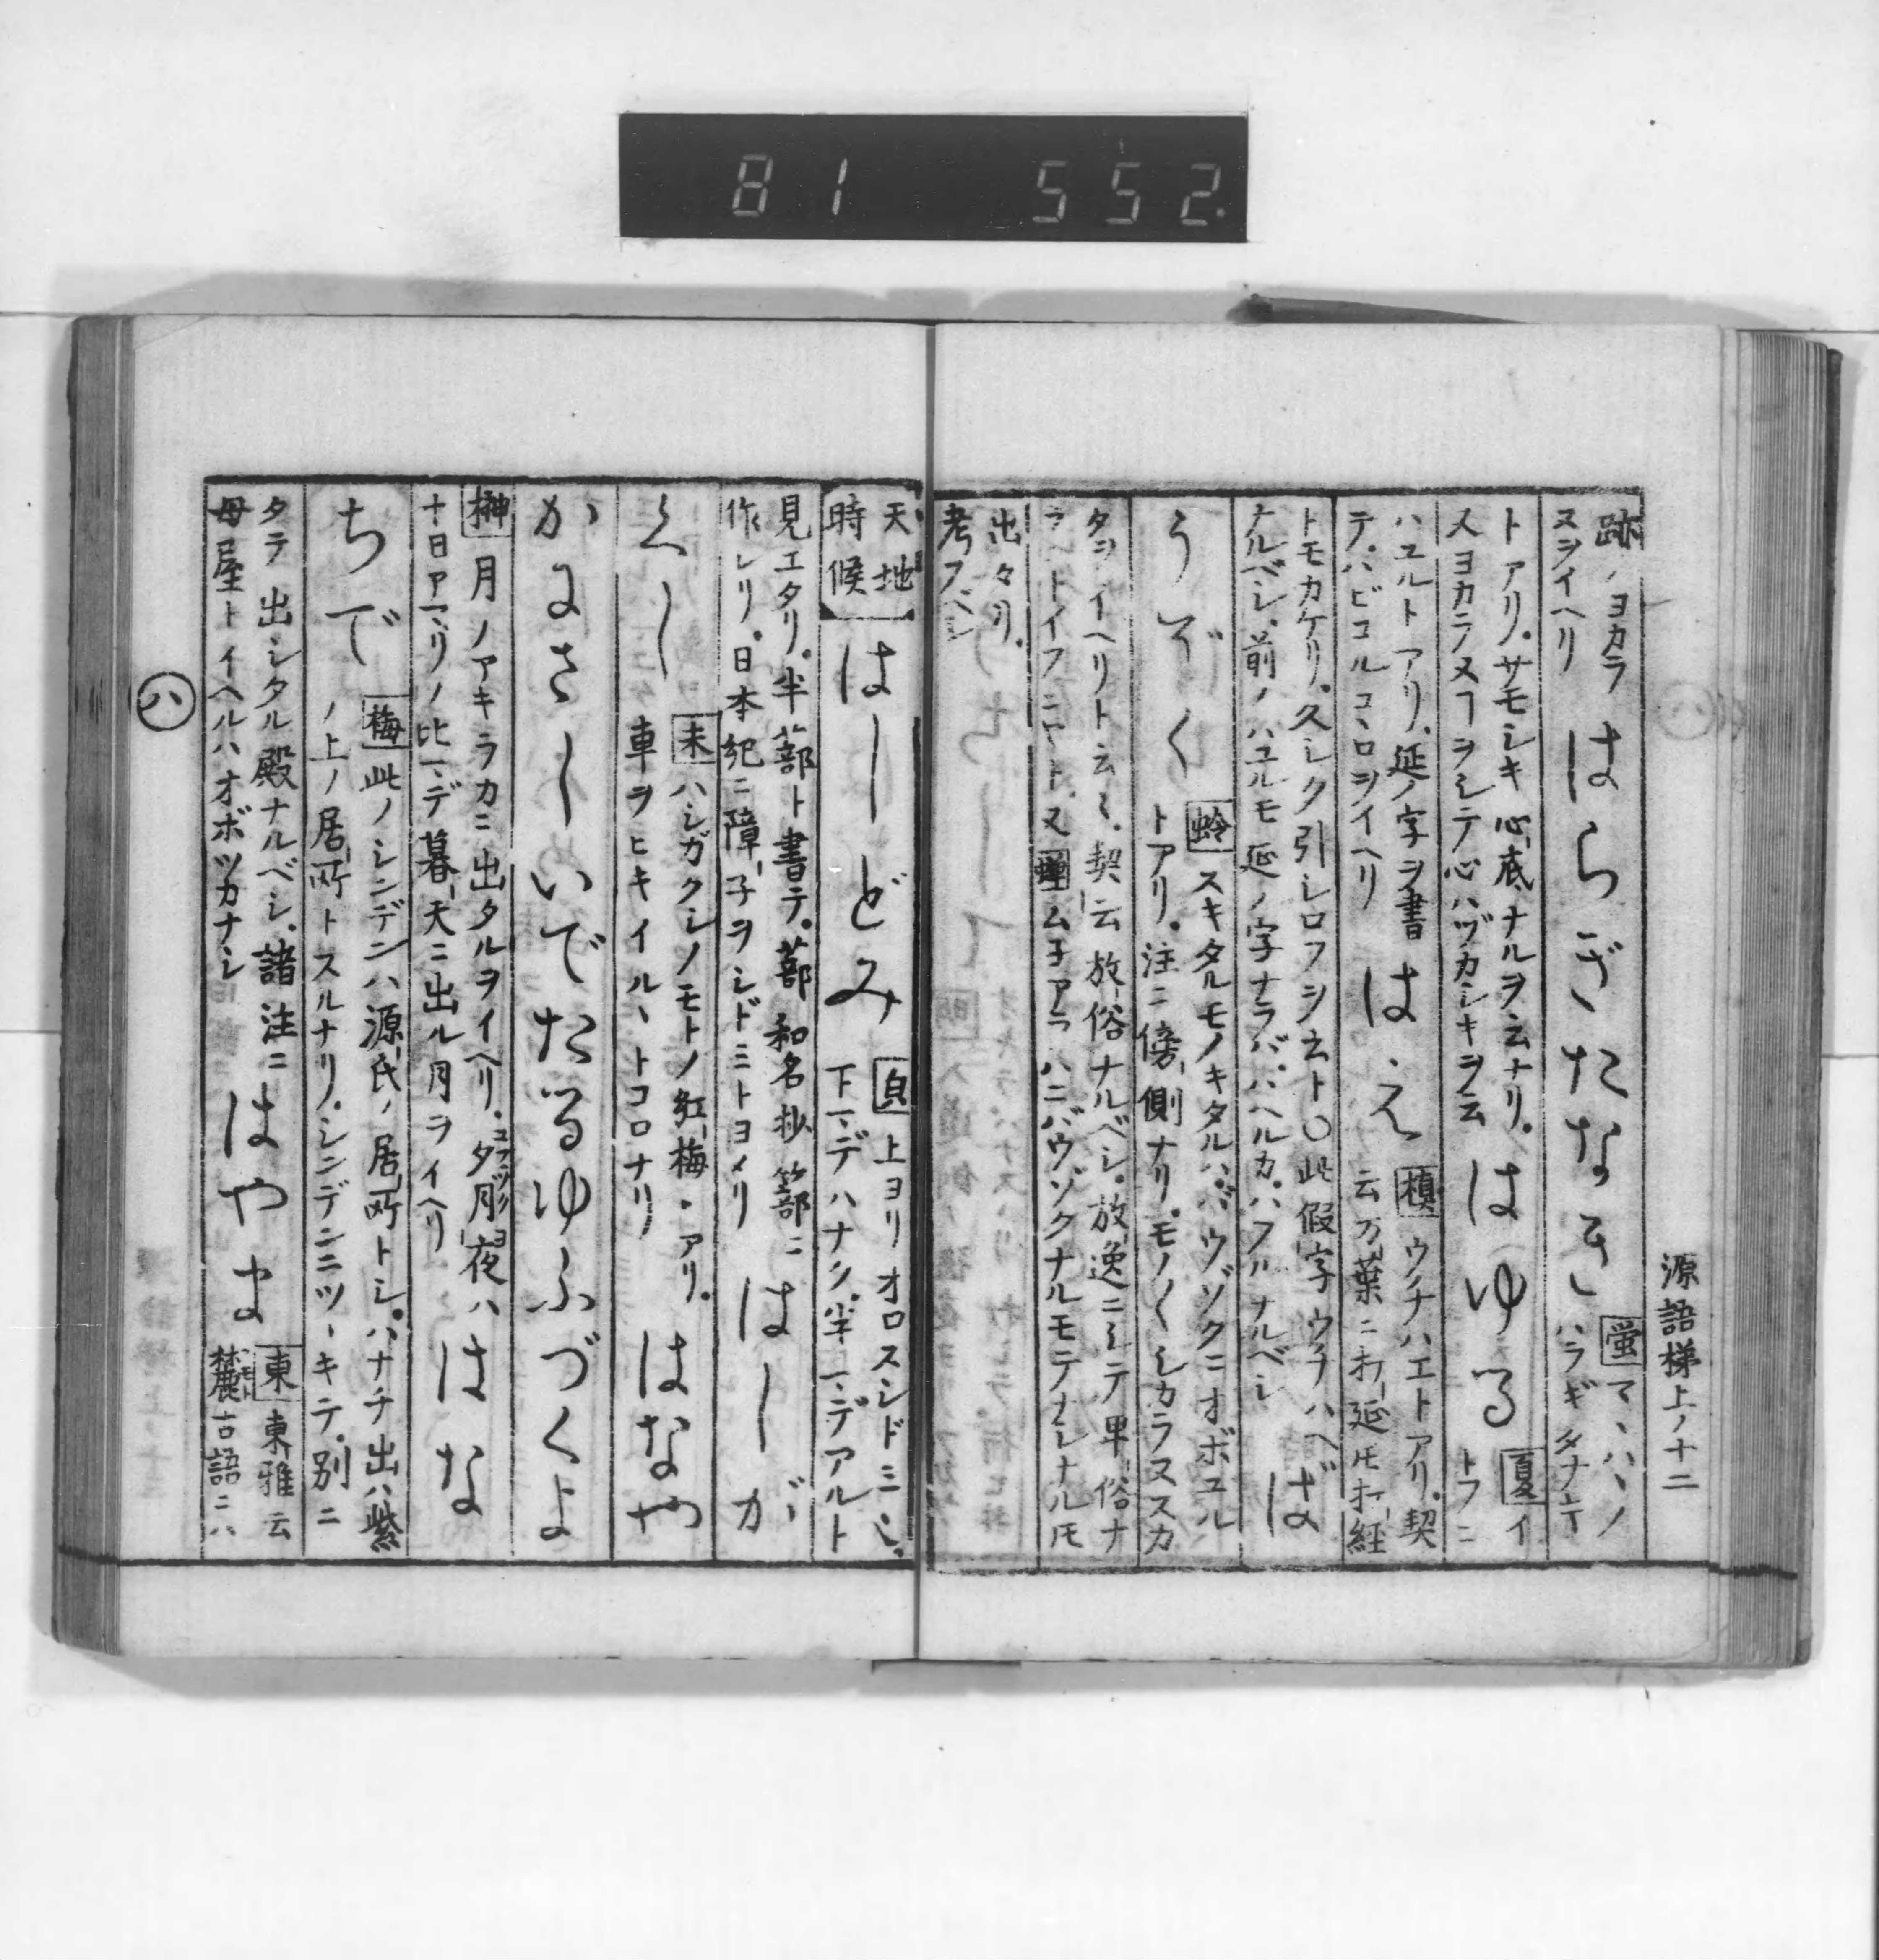 81 552.
源語梯上ノ十二
跡ノヨカラ
ヌヲイヘリ
はらぎたなき
螢マヽハヽノ
ハラギタナキ
トアリ。サモシキ心底ナルヲ云ナリ。
又ヨカラヌヿヲシテ心ハヅカシキヲ云
はゆる
夏イ
トフニ
ハユルトアリ。延ノ字ヲ書
テ。ハビコルコヽロヲイヘリ
はえ
槙ウチハエトアリ。契
云万葉ニ打延モ打経
トモカケリ。久シク引シロフヲ云ト〇此假字ウチハヘ
ナルベシ。前ノハユルモ延ノ字ナラバ。ハヘルカ。ハフルナルベシ
ば
うぞく
蛉スキタルモノキタルハ。バウゾクニオボユル
トアリ。注ニ傍側ナリ。モノ〱シカラヌスカ
タヲイヘリト云々。契云放俗ナルベシ。放逸ニシテ卑俗ナ
ラントイフニヤト。又
ムネアラハニバウゾクナルモテナシナルモ
出々リ。
考フベシ
天地
時候
はしどみ
貞上ヨリオロスシドミニシ。
下マデハナク。半マデアルト
見エタリ。半蔀ト書テ。蔀和名抄篰ニ
作レリ。日本紀ニ障子ヲシドミトヨメリ
はしが
くし
末ハシガクシノモトノ紅梅。アリ。
車ヲヒキイルヽトコロナリ
はなや
かにさしいでたるゆふづくよ
榊月ノアキラカニ出タルヲイヘリ。夕月夜ハ
十日アマリノ比マデ暮天ニ出ル月ヲイヘリ
はな
ちで
梅此ノシンデンハ源氏ノ居所トシ。ハナチ出ハ紫
ノ上ノ居所トスルナリ。シンデンニツヾキテ。別ニ
タテ出シタル殿ナルベシ。諸注ニ
母屋トイヘルハオボツカナシ
はやま
東東雅云
麓古語ニハ
ハ